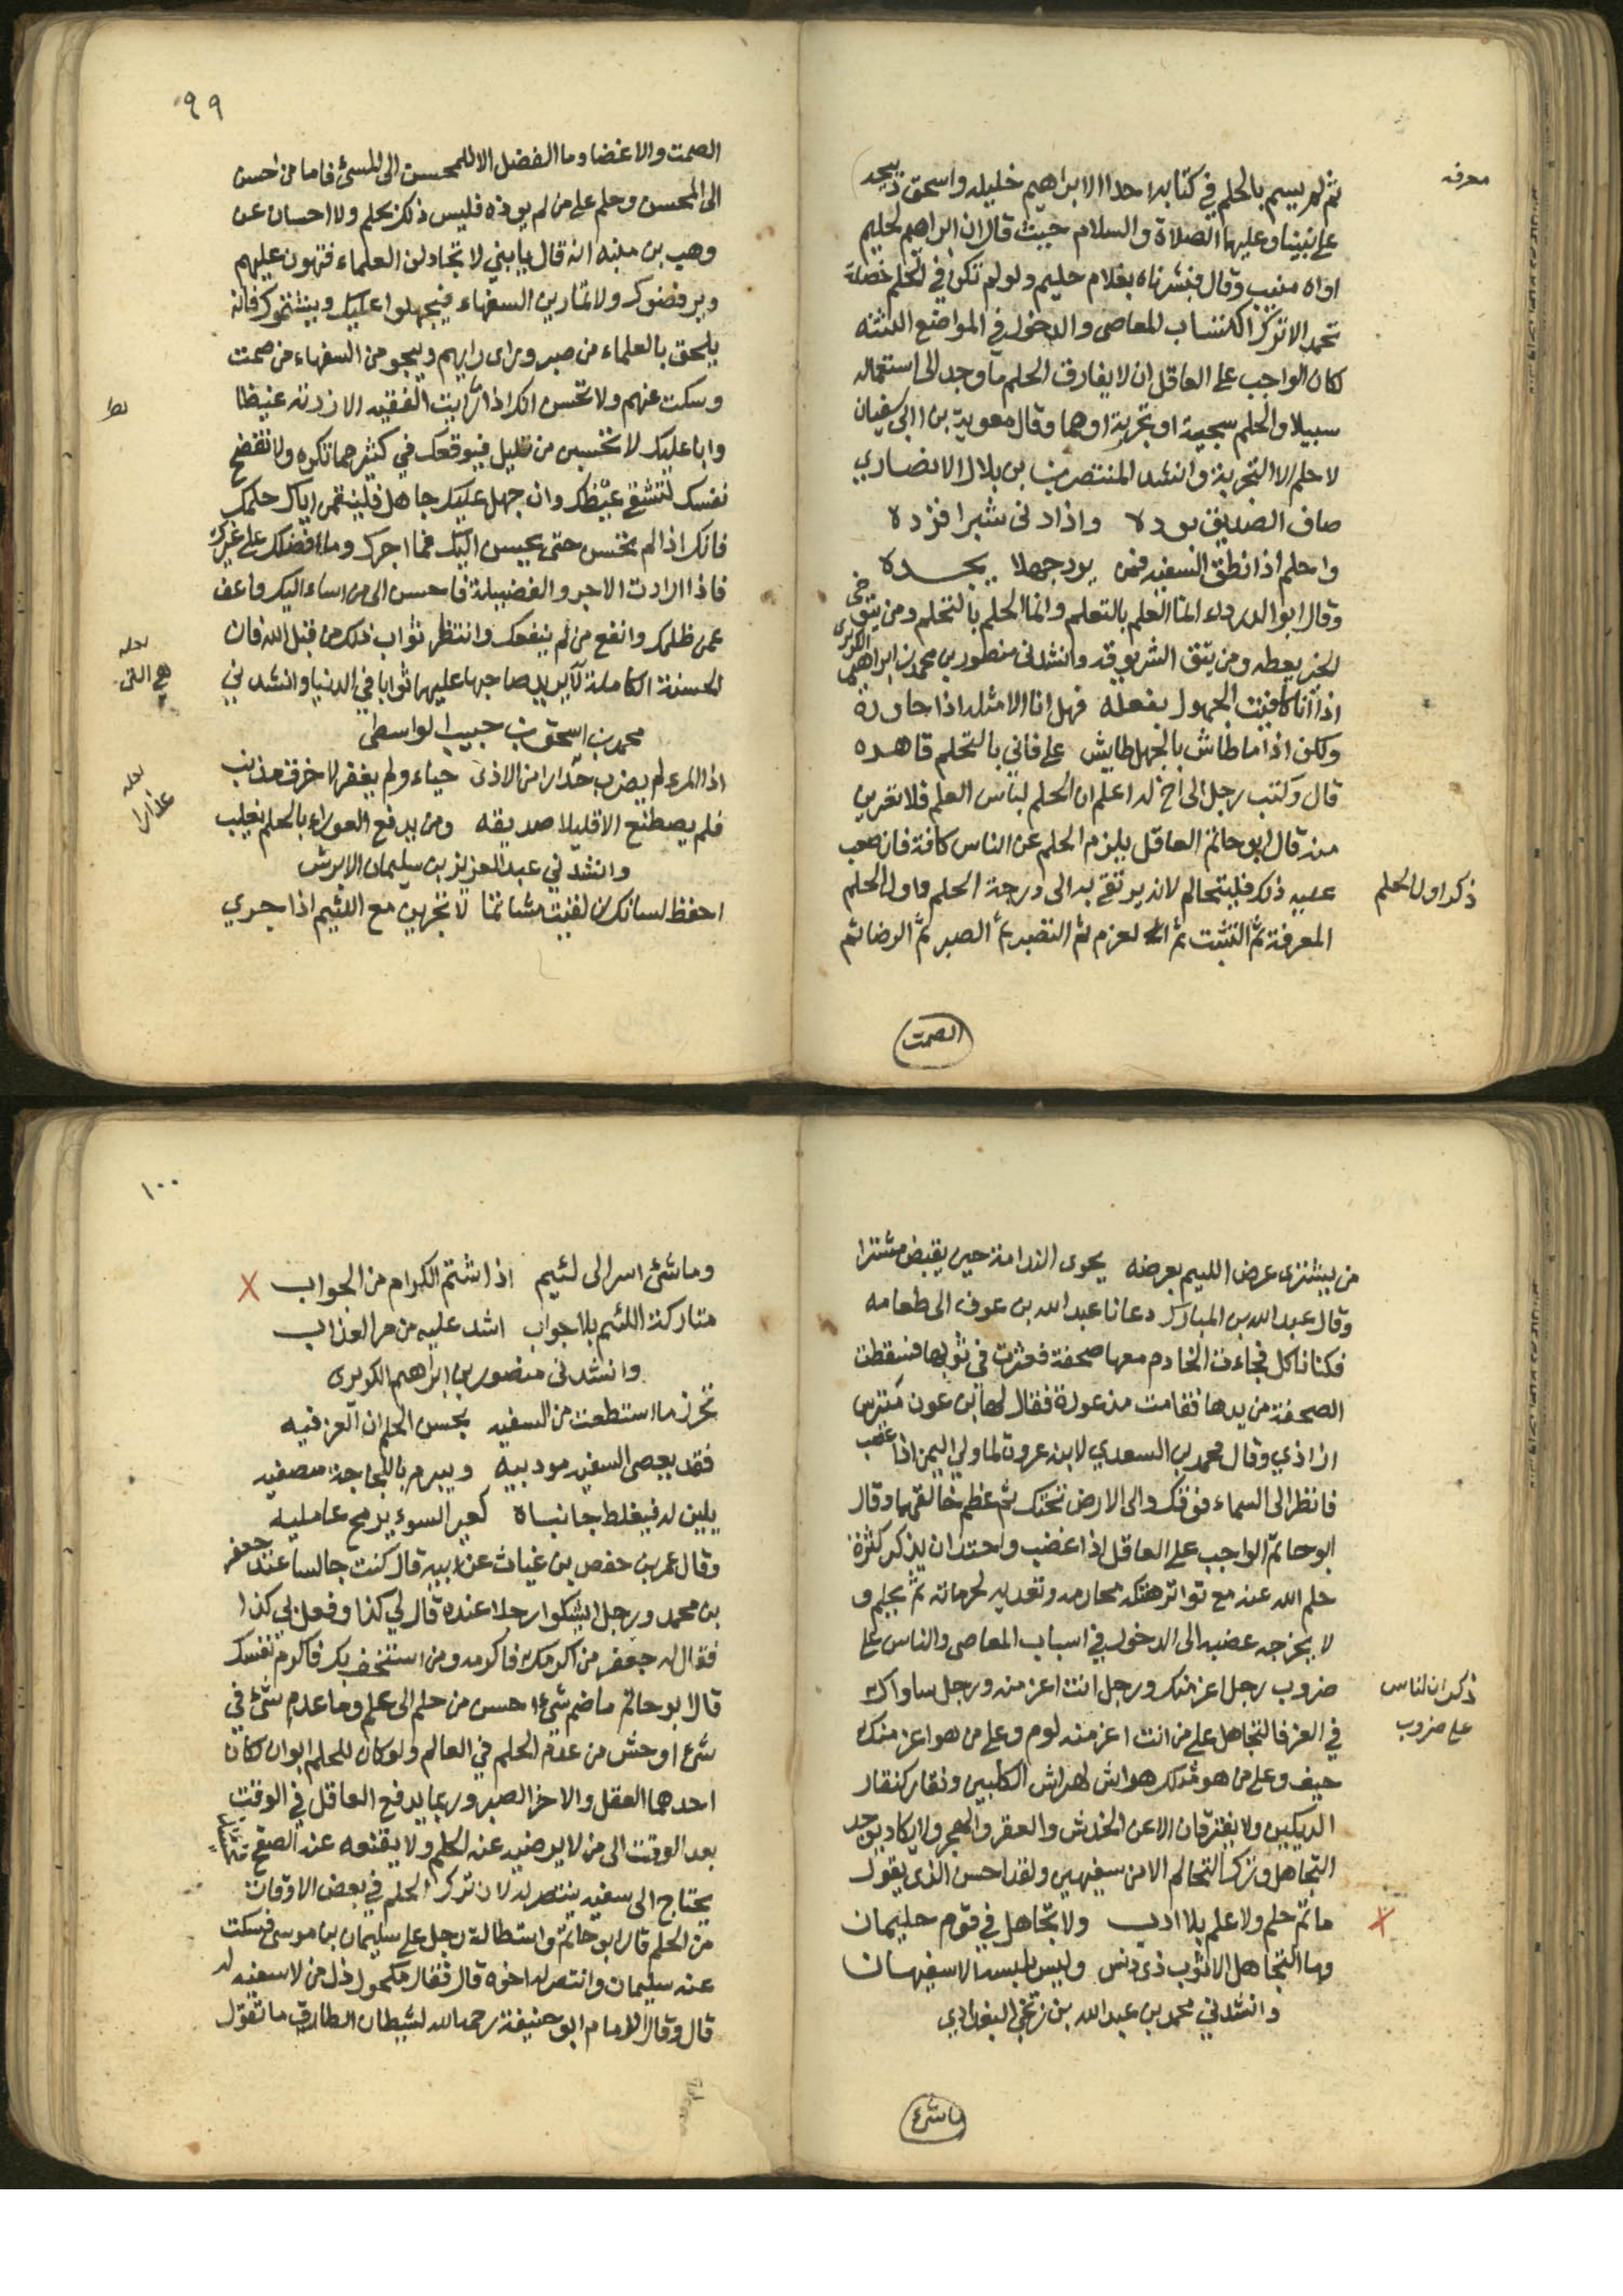 معرفه
ثم لم يسم بالحلم في كتابه احدا الا ابراهيم خليله واسحق ذبيحه
على نبينا وعليهما الصلاة والسلام حيث قال ان ابراهيم لحليم
اواه منيب وقال فبشرناه بغلام حليم ولو لم تكن في الحلم خصلة
تحمد الا ترك اكتساب المعاصى والدخول في المواضع الدنسه
لكان الواجب على العاقل ان لا يفارق الحلم ما وجد الى استعماله
سبيلا والحلم سجية او تجربة او هما وقال معوية بن ابي سفيان
لا حلم الا التجربة وانشد المنتصر بن بلال الانصاري
صاف الصديق بوده واذا دنى شبرا فزده
واحلم اذا نطق السفيه فمن يرد جهلا يجده
وقال ابو الدرداء انما العلم بالتعلم وانما الحلم بالتحلم ومن يتوخى
الخير يعطه ومن يتق الشر يوقه وانشدنى منصور بن محمد بن ابراهيم الكريزى
اذا انا كافيت الجهول بفعله فهل انا الا مثله اذا حاوره
ولكن اذا ما طاش بالجهل طايش على فاني بالتحلم قاهره
قال وكتب رجل الى اخ له اعلم ان الحلم لباس العلم فلا تعرين
منه قال ابو حاتم العاقل يلزم الحلم عن الناس كافة فان صعب
عليه ذلك فليتحالم لانه يرتقى به الى درجة الحلم واول الحلم
ذكر اول الحلم
المعرفة ثم التثبت ثم العزم ثم التصبر ثم الصبر ثم الرضا ثم
الصمت
٩٩
الصمت والاغضا وما الفضل الا للمحسن الى المسئ فاما من احسن
الى المحسن وحلم على من لم يوذه فليس ذلك بحلم ولا احسان عن
وهب بن منبه انه قال يا بني لا تجادلن العلماء فتهون عليهم
ويرفضوك ولا تمارين السفهاء فيجهلوا عليك ويشتموك فانه
يلحق بالعلماء من صبر وراى رايهم وينجو من السفهاء من صمت
وسكت عنهم ولا تحسن انك اذا ماريت الفقيه الا زدته غيضا
وابا عليك لا تحسبن من قليل فيوقعك في كثير مما تكره ولا تفضح
نفسك لتشفى غيظك وان جهل عليك جاهل فلينفعن اياك حلمك
فانك اذا لم تحسن حتى يحسن اليك فما اجرك وما فضلك على غيرك
فاذا اردت الاجر والفضيلة فاحسن الى من اساء اليك واعف
عمن ظلمك وانفع من لم ينفعك وانتظر ثواب ذلك من قبل الله فان
الحسنة الكاملة لا يريد صاحبها عليها ثوابا في الدنيا وانشدني
لعله
هى التى
محمد بن اسحق بن حبيب الواسطى
اذا المرء لم يضرب حدارا من الاذى حياء ولم يغفر لاخرق مذنب
لعله
عذارا
فلم يصطنع الا قليلا صديقه ومن يدفع العوراء بالحلم يغلب
وانشدني عبد العزيز بن سليمان الابرش
احفظ لسانك ان لقيت مشاتما لا تجرين مع اللئيم اذا جرى
من يشترى عرض اللئيم بعرضه يحوى الندامة حين يقبض مشترا
وقال عبد الله بن المبارك دعانا عبد الله بن عوف الى طعامه
فكنا ناكل فجاءت الخادم معها صحفة فعثرت في ثوبها فسقطت
الصحفة من يدها فقامت مذعورة فقال لها ابن عون
ازاذي وقال محمد بن السعدي لابنه عروة لما ولي اليمن اذا غضب
فانظر الى السماء فوقك والى الارض تحتك ثم عظم خالقهما وقال
ابو حاتم الواجب على العاقل اذا غضب واحتد ان يذكر كثرة
حلم الله عنه مع تواتر هتكه محارمه وتعديه لحرماته ثم يحلم و
لا يخرجه غضبه الى الدخول في اسباب المعاصى والناس على
ضروب رجل اعز منك ورجل انت اعز منه ورجل ساواك
ذكر ان الناس
على ضروب
في العز فالتجاهل على من انت اعز منه لوم وعلى من هو اعز منك
حيف وعلى من هو مثلك هراش كهراش الكلبين ونقار كنقار
الديكين ولا يفترقان الا عن الخدش والعقر والهجر ولا يكاد يوجد
التجاهل وترك التحالم الا من سفيهين ولقد احسن الذى يقول
ما تم حلم ولا علم بلا ادب ولا تجاهل في قوم حليمان
وما التجاهل الا ثوب ذى دنس وليس يلبسه الا سفيهان
وانشدني محمد بن عبد الله بن زنجي البغدادي
ما شئ
١٠٠
وما شئ اسر الى لئيم اذا شتم الكرام من الجواب
متاركة اللئيم بلا جواب اشد عليه من مر العذاب
وانشدنى منصور بن ابراهيم الكريزى
تحرز ما استطعت من السفيه بحسن الحلم ان العز فيه
فقد يعصى السفيه مودبيه ويبرم باللجاجة منصفيه
يلين له فيغلظ جانباه كعير السوء يرمح عامليه
وقال عمر بن حفص بن غياث عن ابيه قال كنت جالسا عند جعفر
بن محمد ورجل يشكوا رجلا عنده قال لي كذا وفعل بي كذا
فقال له جعفر من اكرمك فاكرمه ومن استخف بك فاكرم نفسك
قال ابو حاتم ما ضم شئ احسن من حلم الى علم وما عدم شئ في
شئ اوحش من عدم الحلم في العالم ولو كان للحلم ابوان لكان
احدهما العقل والاخر الصبر وربما يدفع العاقل في الوقت
بعد الوقت الى من لا يرضيه عنه الحلم ولا يقنعه عنه الصفح
يحتاج الى سفيه ينتصر له لان ترك الحلم في بعض الاوقات
من الحلم قال ابو حاتم واستطالة رجل على سليمان بن موسى فسكت
عنه سليمان وانتصر له اخوه قال فقال مكحول ذل من لا سفيه له
قال وقال الامام ابو حنيفة رحمه الله لشيطان الطارق ما تقول